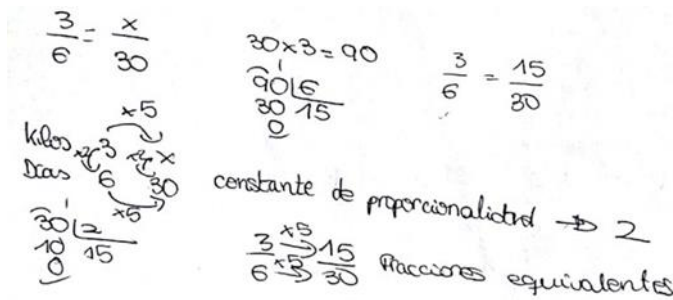 3/6 = x/30
30x3=90
90 | 6
30 15
0
3/6 = 15/30
x5
Kilos 3 x
Dias 6 30
x5
30 | 2
10 15
0
constante de proporcionalidad → 2
3/6 x5 x5 15/30 Fracciones equivalentes